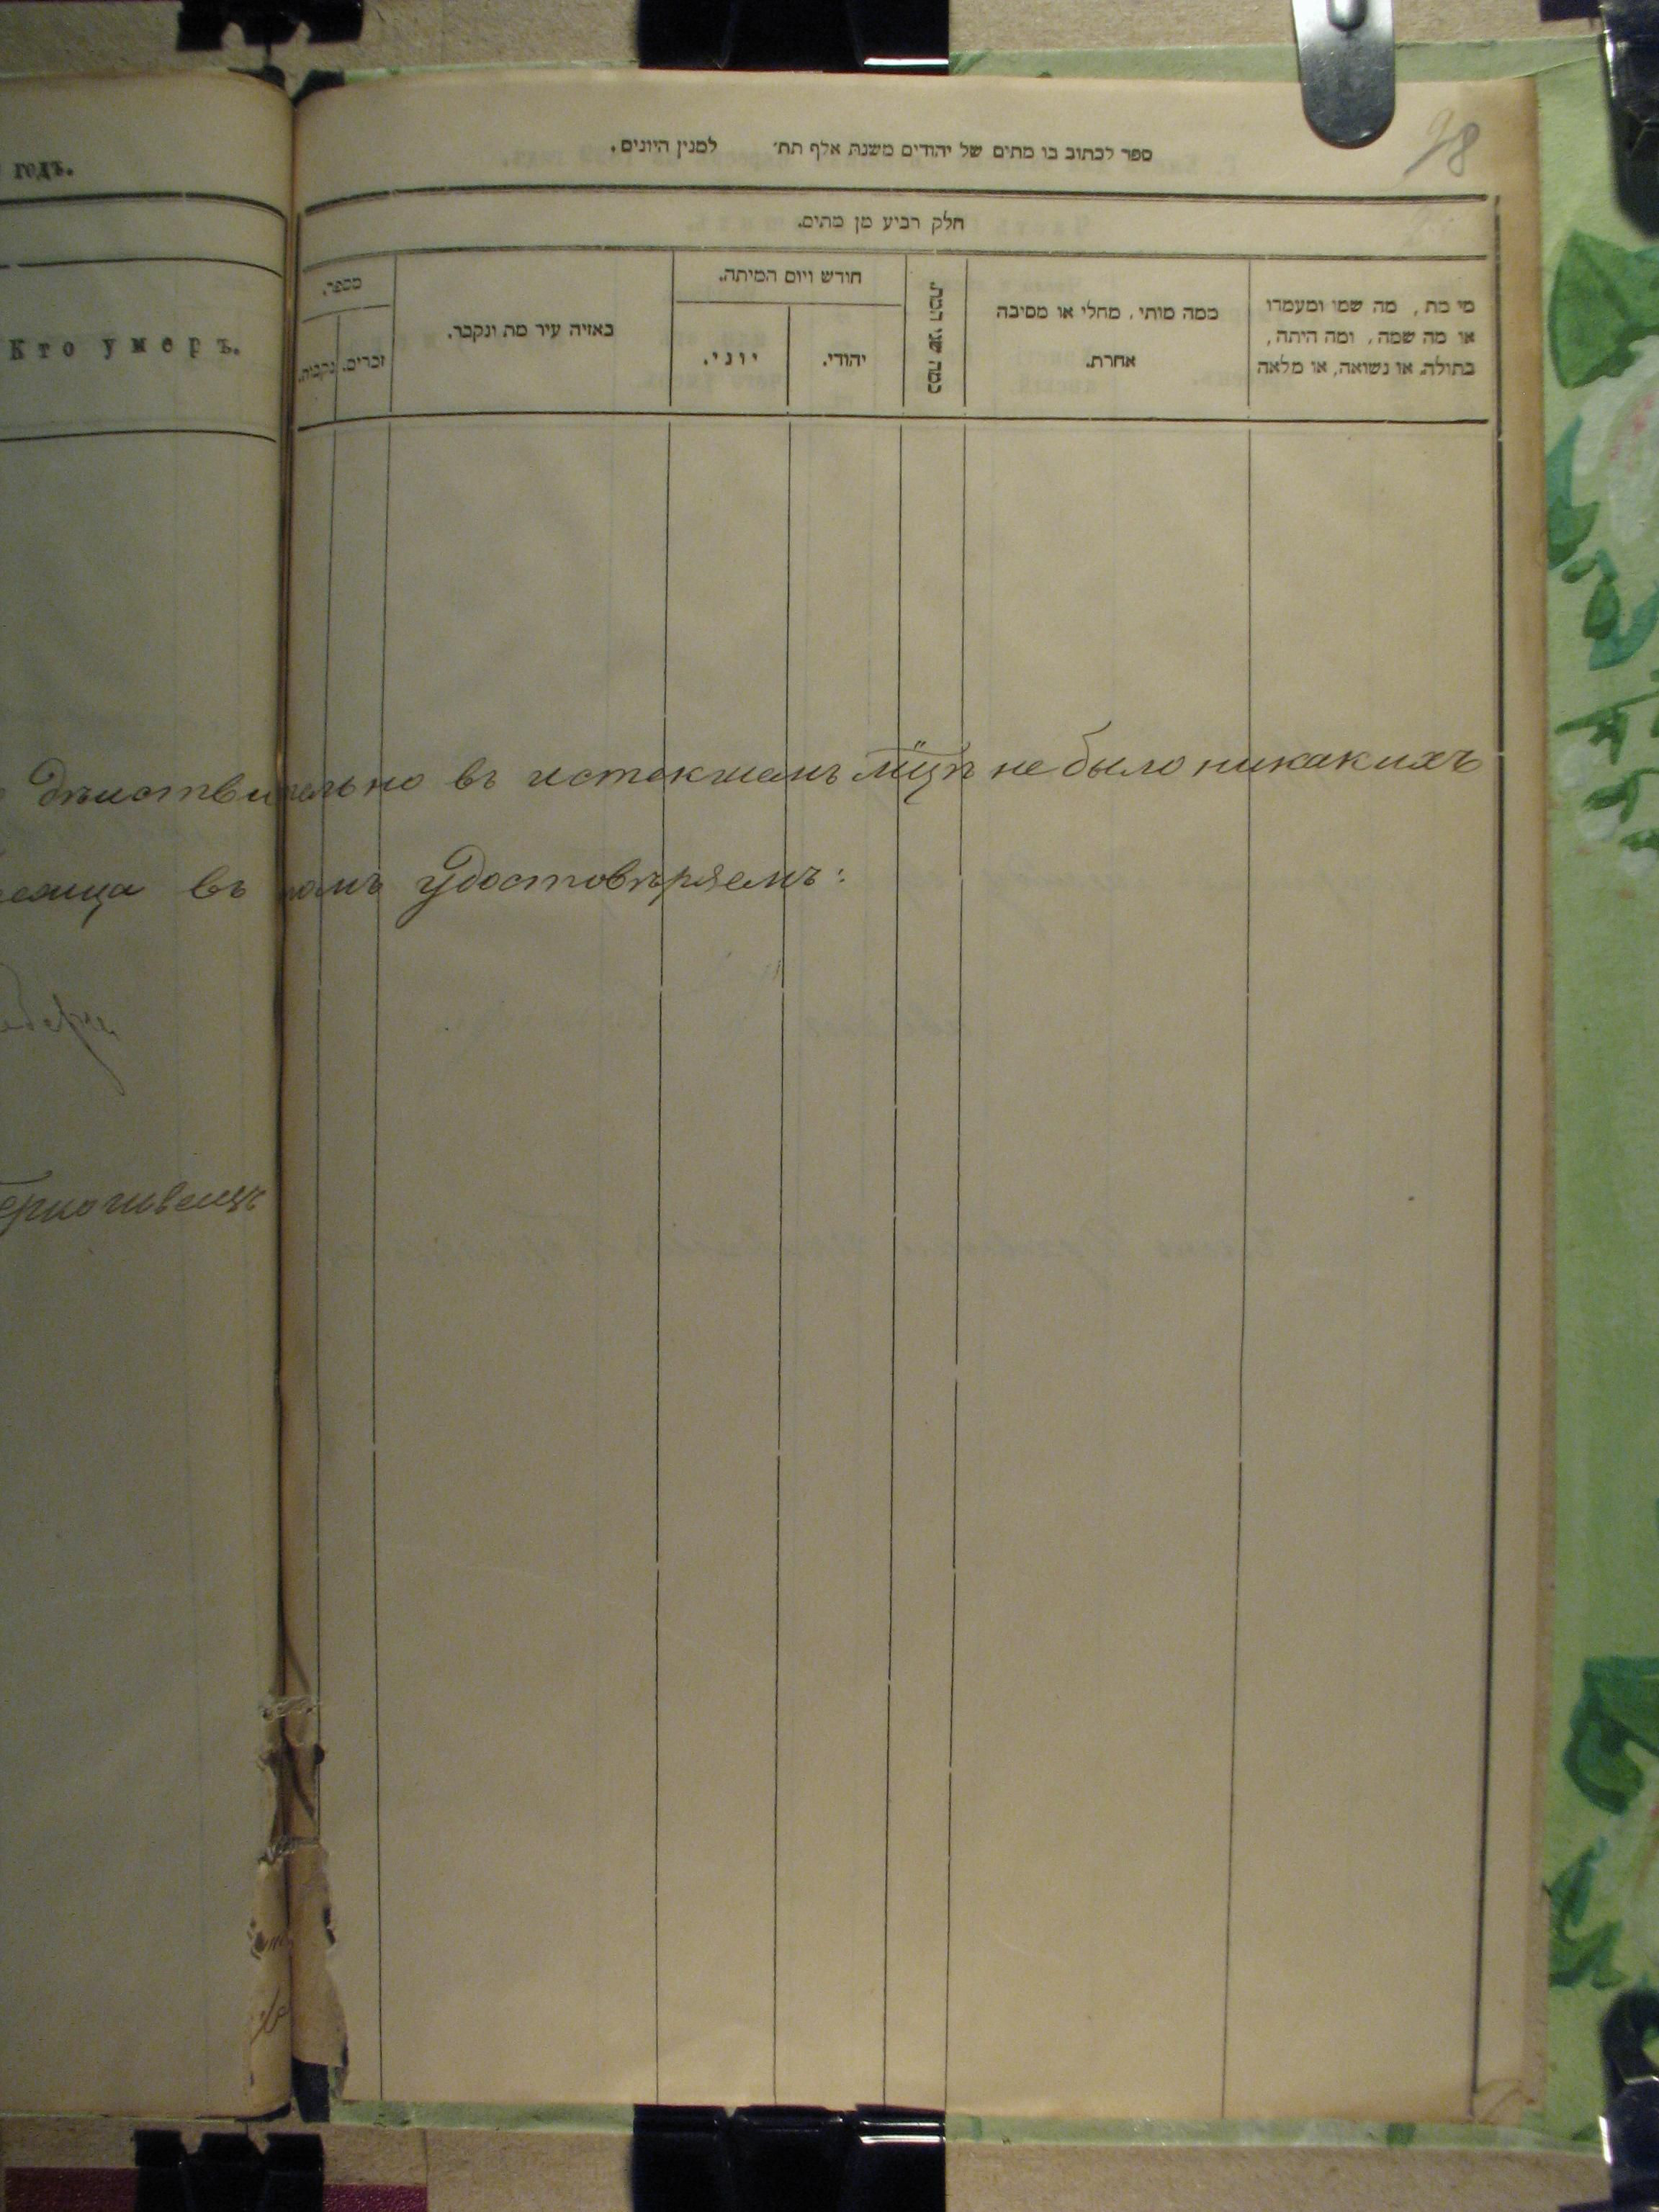 годъ.
Кто умеръ.
98
ספר לכתוב בו מתים של יהודים משנת אלף תת׳ למנין היונים.
חלק רביע מן מתים.
מי מת, מה שמו ומעמדו
או מה שמה, ומה היתה,
בתולה, או נשואה, או מלאה
ממה מותי, מחלי או מסיבה
אחרת.
כמה שני המת.
חודש ויום המיתה.
יהודי.
יוני.
באיזה עיר מת ונקבר.
מספר.
זכרים.
נקבות.
действительно въ истекшемъ мцѣ не было никакихъ
въ томъ удостовѣряемъ: